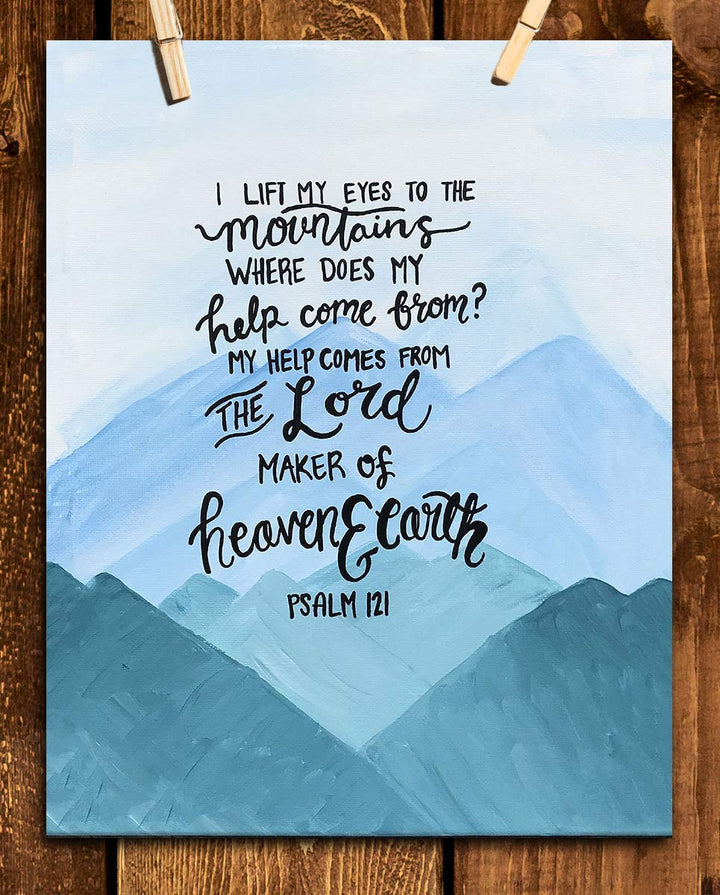 I LIFT MY EYES TO THE
mountains
WHERE DOES MY
help come from?
MY HELP COMES FROM
THE Lord
MAKER OF
heaven & earth
PSALM 121